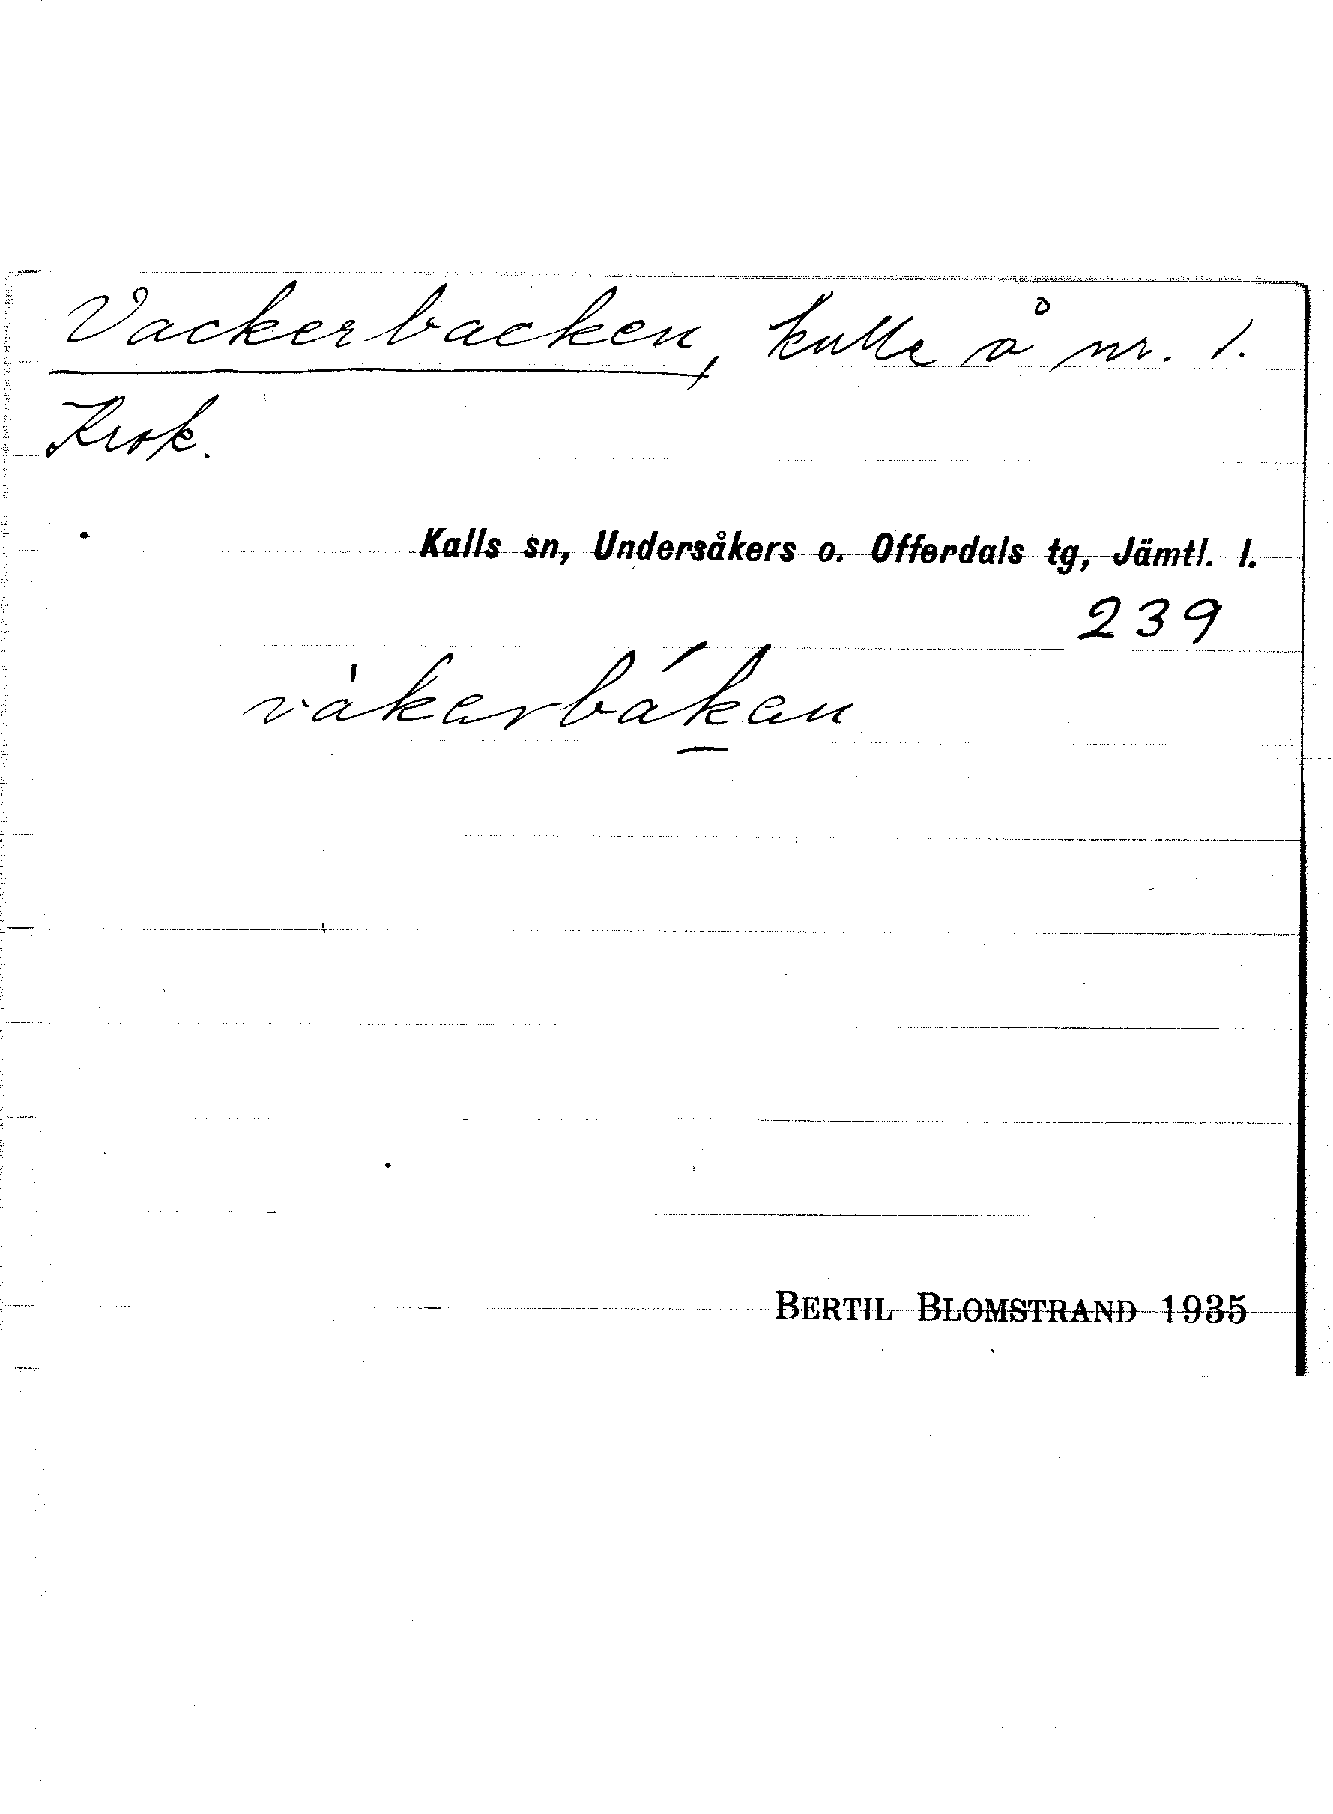 Vackerbacken, kulle å nr. 1.
Krok.
Kalls sn, Undersåkers o. Offerdals tg, Jämtl. l.
239
vàkerbákan
BERTIL BLOMSTRAND 1935